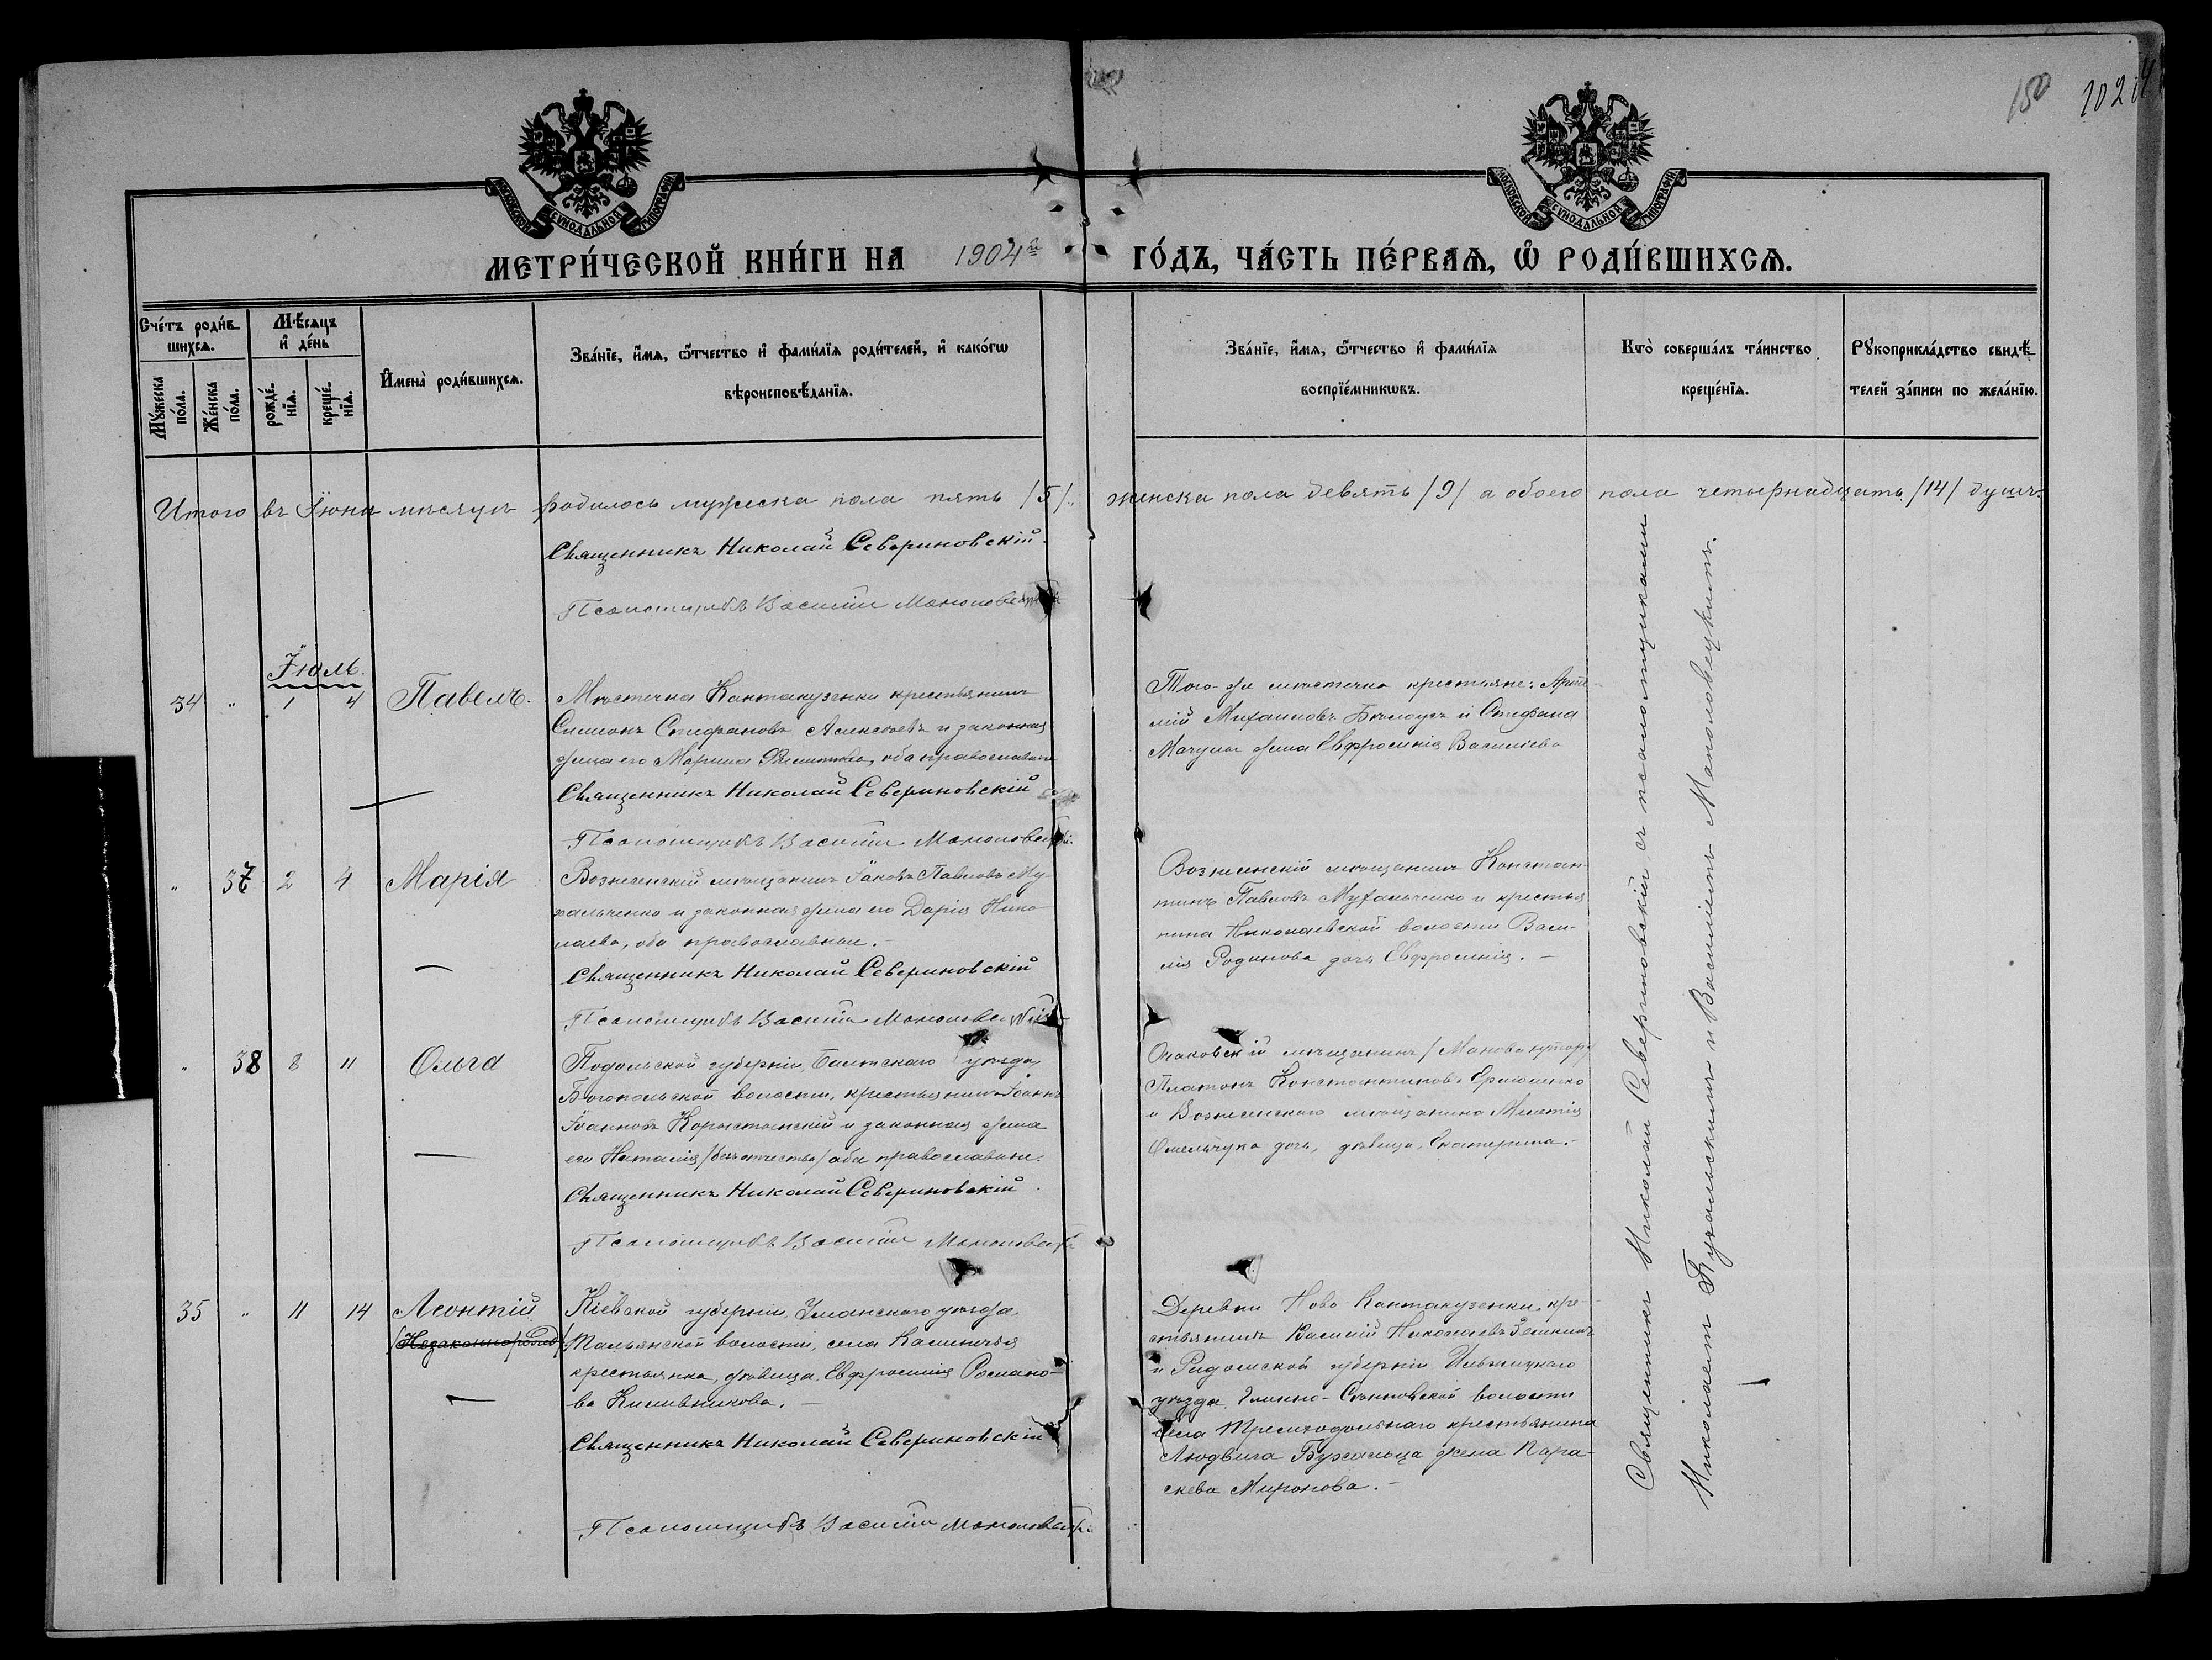 150 102
МОСКОВСКОЙ СУНОДАЛЬНОЙ ТИПОГРАФІИ
МОСКОВСКОЙ СУНОДАЛЬНОЙ ТИПОГРАФІИ
МЕТРИ́ЧЕСКОЙ КНИ́ГИ НА 1904й ГО́ДЪ, ЧА́СТЬ ПЕ́РВАѦ, Ѡ҆ РОДИ́ВШИХСѦ.
Сче́тъ роди́в-
шихсѧ.
Мꙋ́жеска
по́ла.
Же́нска
по́ла.
Мѣ́сѧцъ
и҆ де́нь
рожде́-
нїѧ.
креще́-
нїѧ.
И҆мена̀ роди́вшихсѧ.
Зва́нїе, и҆́мѧ, ѻ҆́тчество и҆ фами́лїѧ роди́телей, и҆ како́гѡ
вѣроисповѣ́данїѧ.
Зва́нїе, и҆́мѧ, ѻ҆́тчество и҆ фами́лїѧ
воспрїе́мникѡвъ.
Кто̀ соверша́лъ та́инство
креще́нїѧ.
Рꙋкоприкла́дство свидѣ́-
телей за́писи по жела́нїю.
Итого въ Іюнѣ мѣсяцѣ родилось мужеска пола пять /5/, женска пола девять /9/ а обоего пола четырнадцать /14/ душъ.
Священникъ Николай Севериновскій.
Псаломщикъ Василій Маноловецкій
Іюль.
34 " 1 4 Павелъ.
Мѣстечка Кантакузенки крестьянинъ
Симеонъ Стефановъ Алексѣевъ и законная
жена его Марина Филиппова, оба православные
Священникъ Николай Севериновскій
Псаломщикъ Василій Маноловецкій.
Того-же мѣстечка крестьяне: Арте-
мій Михаиловъ Бѣлоусъ и Стефана
Мачулы жена Евфросинія Василіева
" 37 2 4 Марія
Вознесенскій мѣщанинъ Іаковъ Павловъ Му-
хальченко и законная жена его Дарія Нико-
лаева, оба православные.-
Священникъ Николай Севериновскій
Псаломщикъ Василій Маноловецкій
Вознесенскій мѣщанинъ Констан-
тинъ Павловъ Мухальченко и крестья-
нина Николаевской волости Васи-
лія Родинова дочь Евфросинія. -
" 38 8 11 Ольга
Подольской губерніи, Балтскаго уѣзда,
Богопольской волости, крестьянинъ Іоаннъ
Іоанновъ Корыстанскій и законная жена
его Наталія /безъ отчества/ оба православные.
Священникъ Николай Севериновскій.
Псаломщикъ Василій Маноловецкій
Очаковскій мѣщанинъ /Манова хутора/
Платонъ Константиновъ Ермоленко
и Вознесенскаго мѣщанина Мелетія
Омельчука дочь, дѣвица, Екатерина.-
35 " 11 14 Леонтій
/Незаконнорожд/
Кіевской губерніи, Уманскаго уѣзда,
Тальянской волости, села
крестьянка, дѣвица, Евфросинія Романо-
ва
Священникъ Николай Севериновскій
Псаломщикъ Василій Маноловецкій
Деревни Ново-Кантакузенки, кре-
стьянинъ Василій Николаевъ
и Радомской губерніи
уѣзда, волости
села крестьянина
Людвига жена Пара-
скева Миронова. -
Священникъ Николай Севериновскій съ псаломщиками
Николаемъ и Василіемъ Маноловецкимъ.